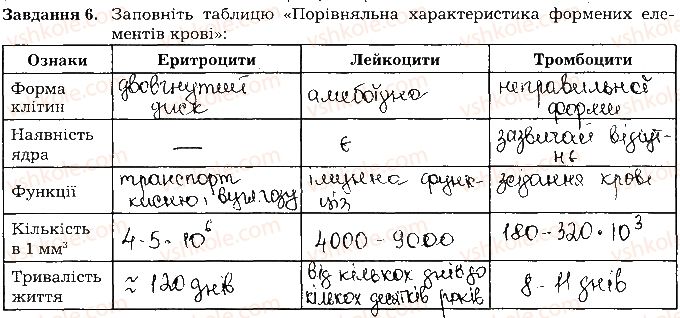 Завдання 6. Заповніть таблицю «Порівняльна характеристика формених еле-
ментів крові»:
Ознаки Еритроцити Лейкоцити Тромбоцити
Форма клітин двовгнутий диск амебоїдна неправильної форми
Наявність ядра — є зазвичай відсутнь
Функції транспорт кисню і вуглгазу імунна функція зсідання крові
Кількість в 1 мм³ 4-5·10⁶ 4000-9000 180-320·10³
Тривалість життя ≈ 120 днів від кількох днів до кількох десятків років 8-11 днів